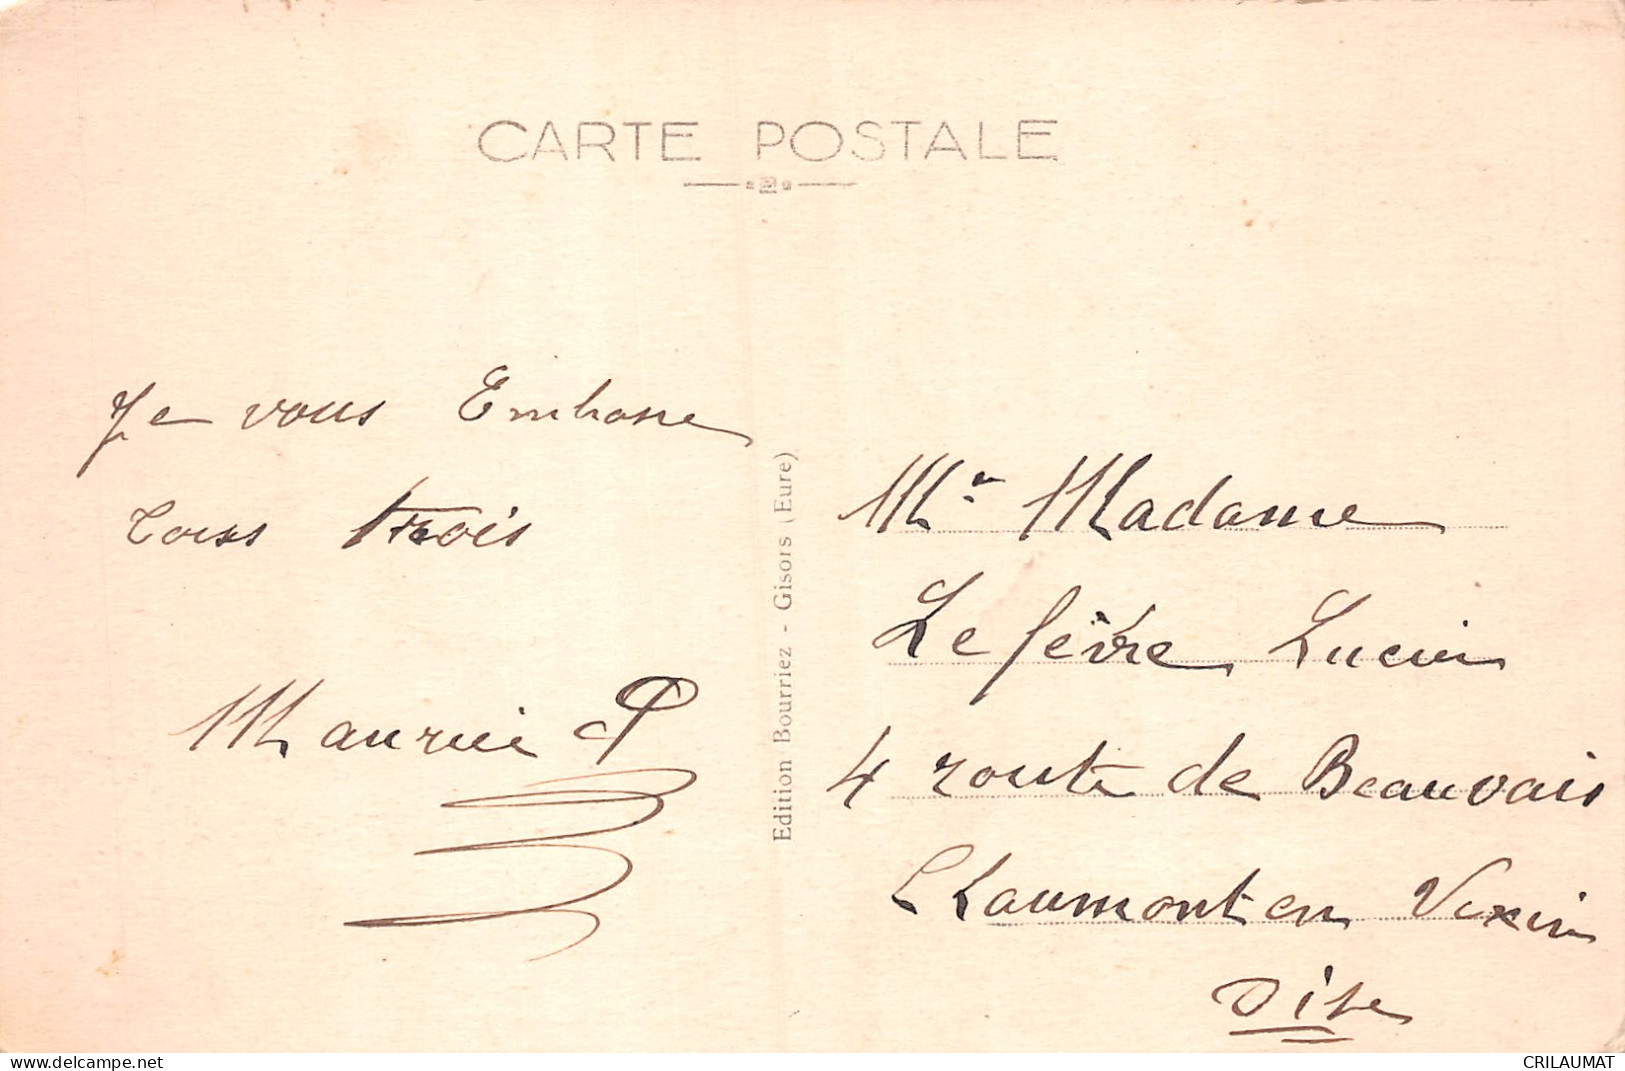 CARTE POSTALE
Je vous Embrasse
tous trois
Maurice P
Edition Bourriez - Gisors (Eure)
Mr Madame
Lefèvre Lucien
4 route de Beauvais
Chaumont en Vexin
Oise
www.delcampe.net
CRILAUMAT